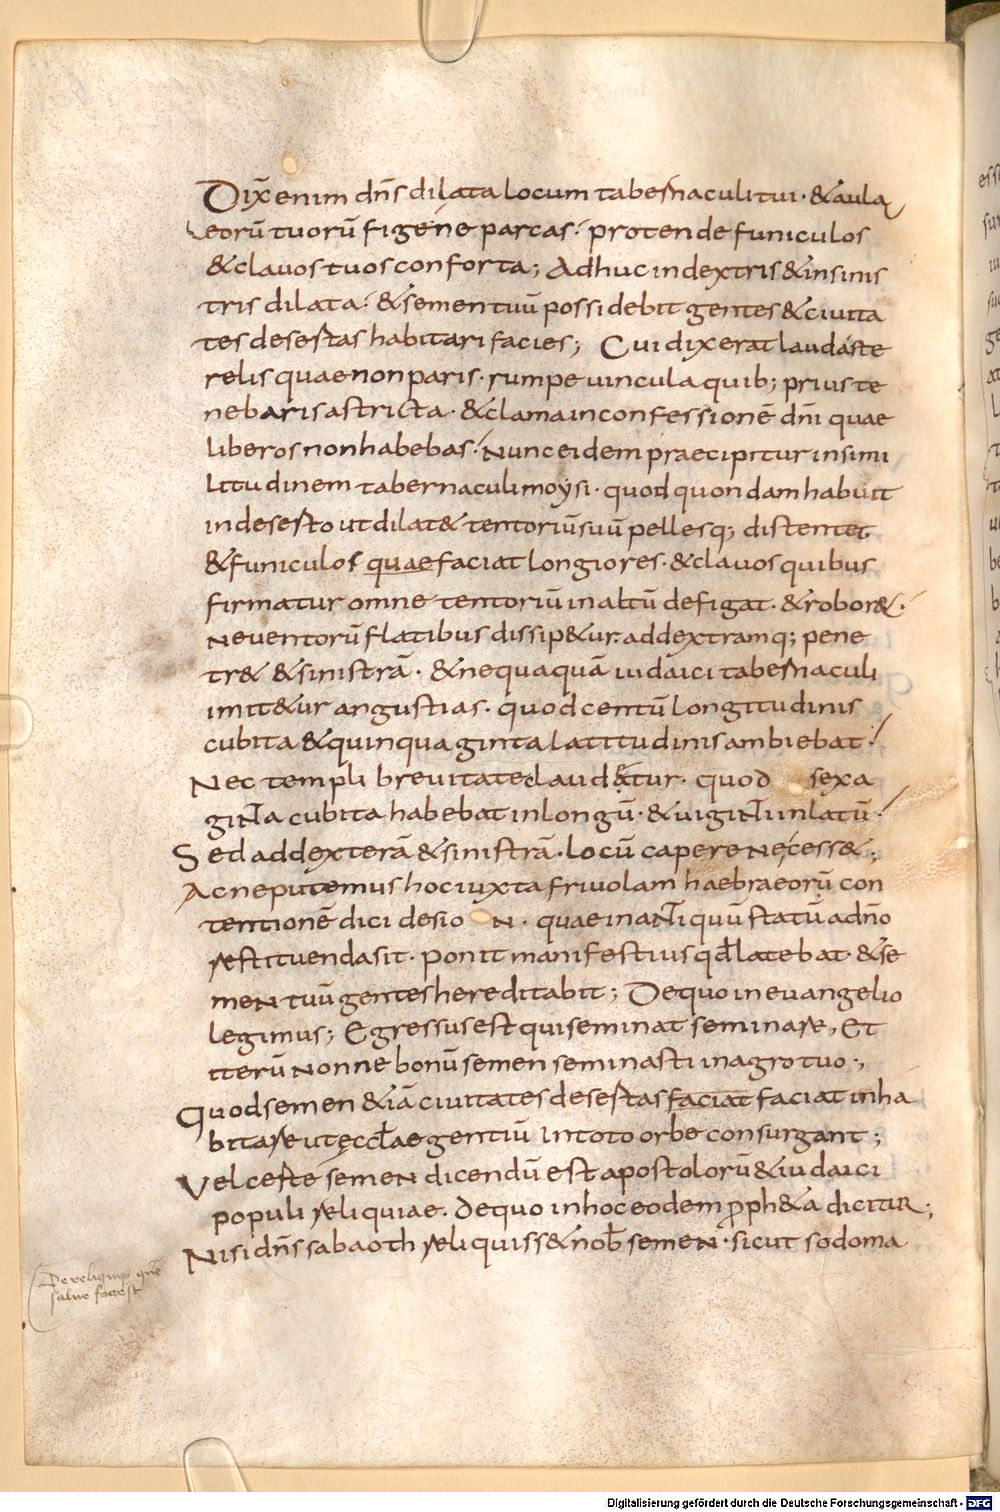 Dix̅ enim dn̅s dilata locum tabernaculi tui · & aula
eorū tuorū fige ne parcas · protende funiculos
& clavos tuos conforta ; Adhuc in dextris & in sinis
tris dilata · & semen tuū possidebit gentes & civita
tes desertas habitari facies ; Cui dixerat lauda ste
relis quae non paris · rumpe vincula quib; prius te
nebaris astricta · & clama in confessionē dn̅i quae
liberos non habebas · Nunc eidem praecipitur in simi
litudinem tabernaculi moysi · quod quondam habuit
in deserto ut dilat& tentoriū suū pellesq; distentet
& funiculos quae faciat longiores · & clavos quibus
firmatur omne tentoriū in altū defigat · & robor& ·
Ne ventorū flatibus dissip&ur. ad dextramq; pene
tr& & sinistrā · & nequaquā iudaici tabernaculi
imit&ur angustias · quod centū longitudinis
cubita & quinquaginta latitudinis ambiebat ·
Nec templi brevitate claudatur · quod sexa
ginta cubita habebat in longū · & viginti in latū ·
Sed ad dexterā & sinistrā · locū capere necess& ;
Ac ne putemus hoc iuxta frivolam haebraeorū con
tentionē dici de sion · quae in antiquū statū adn̅o
restituenda sit · ponit manifestius qd̅ latebat · & se
men tuū gentes hereditabit ; De quo in evangelio
legimus ; Egressus est qui seminat seminare, Et
iterū nonne bonū semen seminasti in agro tuo ·,
Quod semen &iā civitates desertas faciat faciat inha
bitare ut ęccl̅ae gentiū in toto orbe consurgant ;
Vel certe semen dicendū est apostolorū & iudaici
populi reliquiae. De quo in hoc eodem ꝓph&a dicitur ;
Nisi dn̅s sabaoth reliquiss& nob̅ semen · sicut sodoma
De reliquijs que
salve facte st
Digitalisierung gefördert durch die Deutsche Forschungsgemeinschaft - DFG